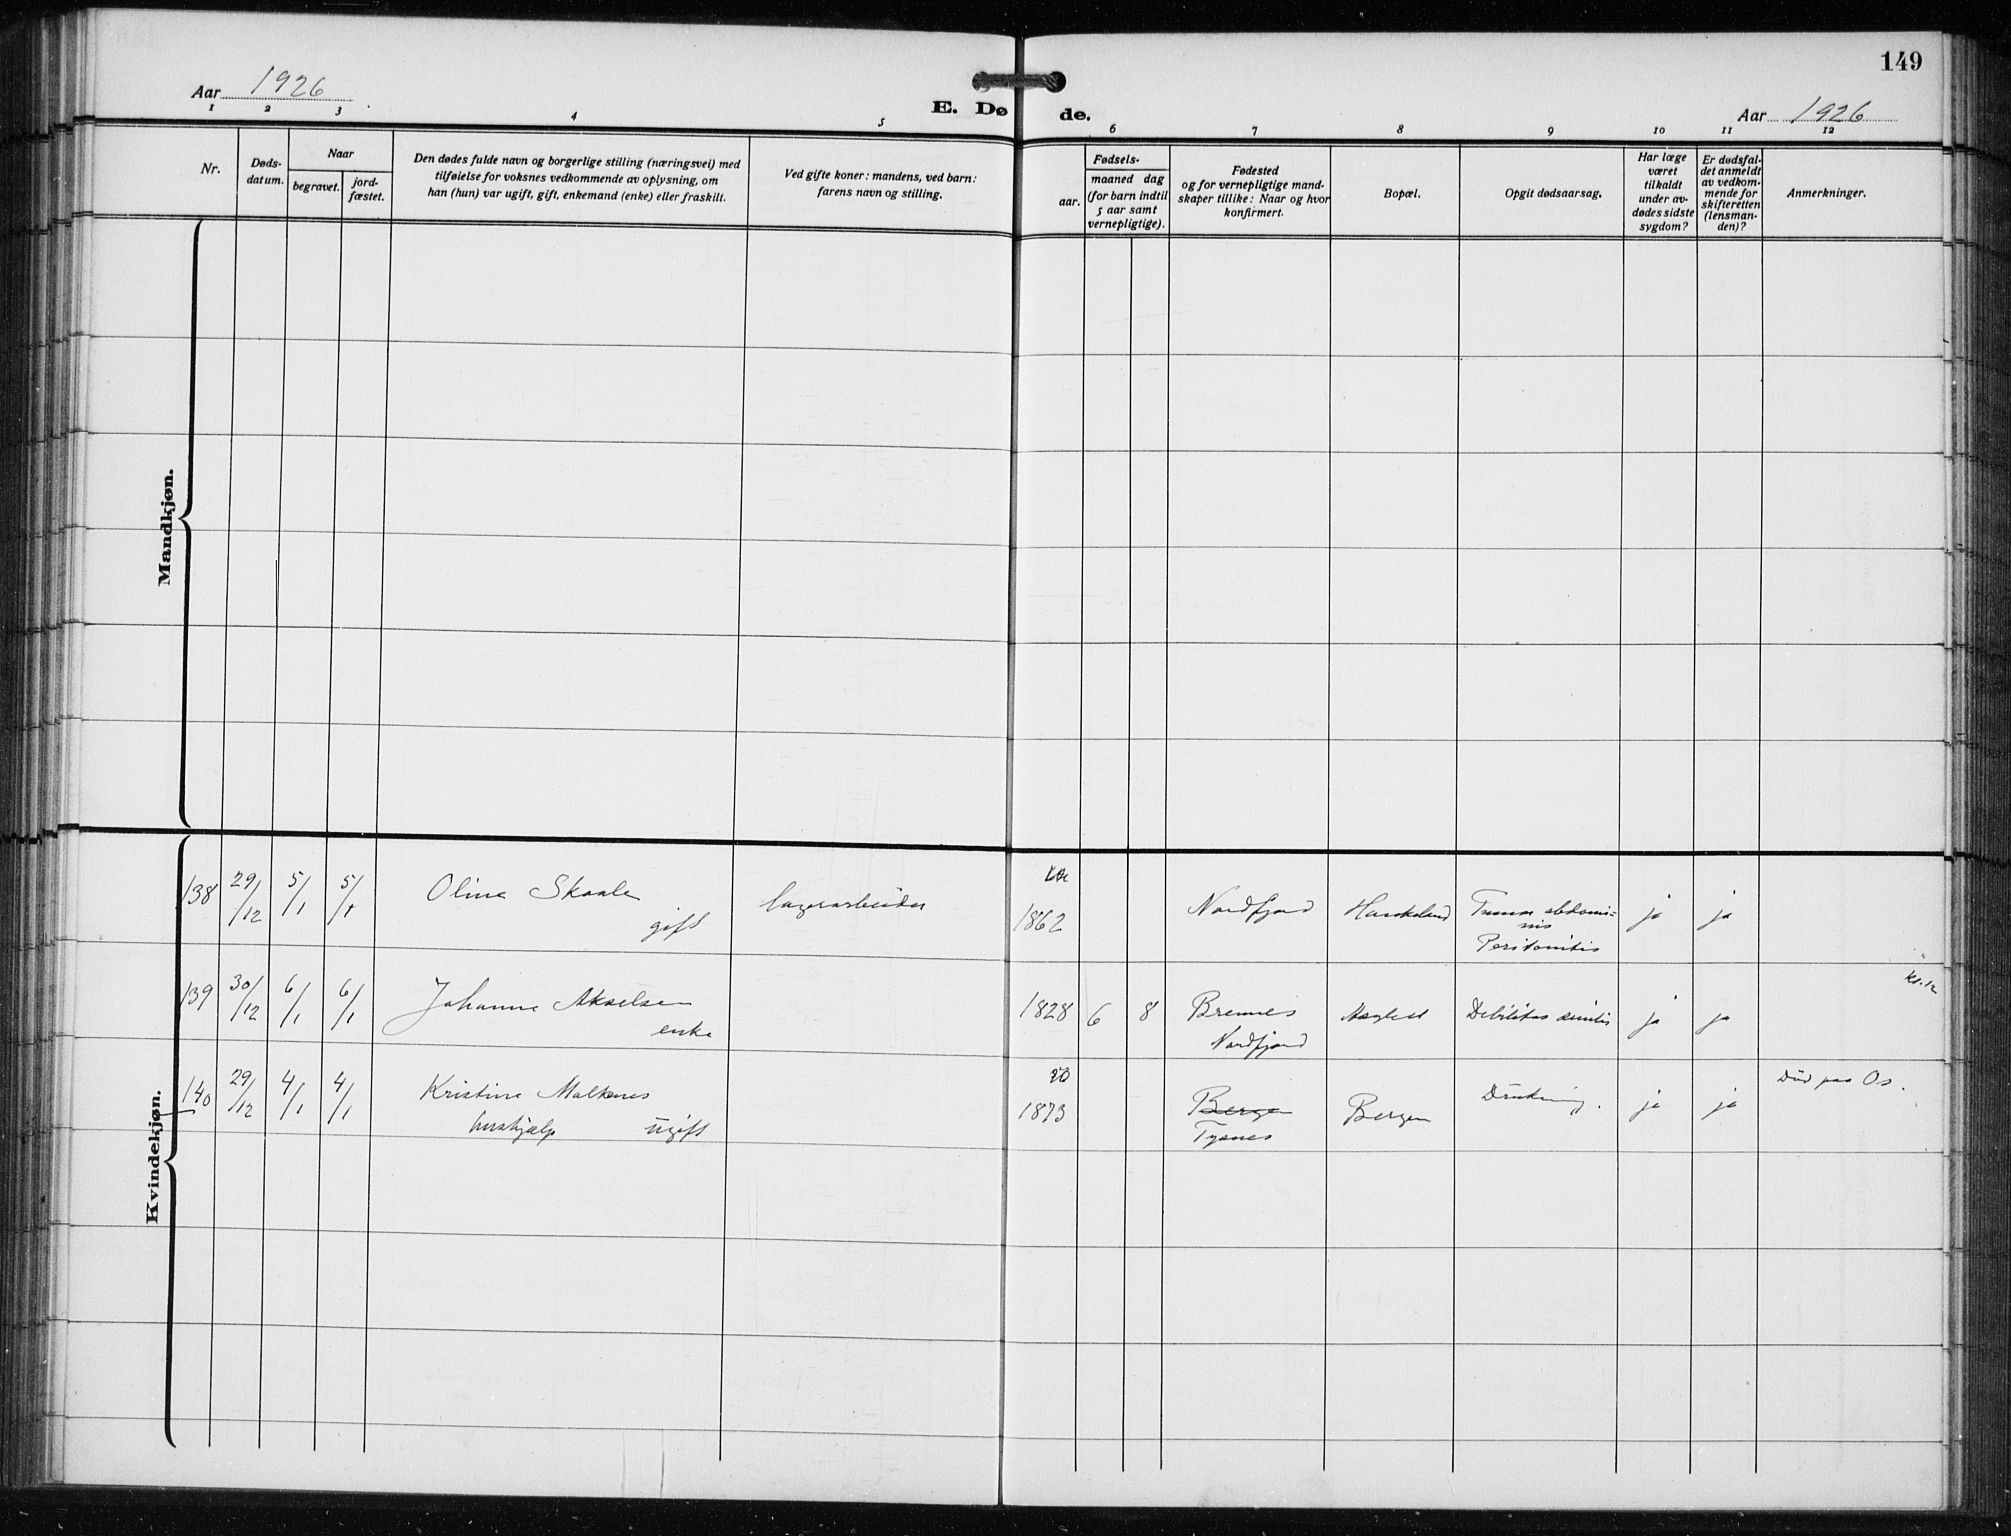 149
Aar 1926
E. Døde.
Aar 1926
1 2 3 4 5 6 7 8 9 10 11 12
Nr.
Døds-
datum.
Naar
begravet.
jord-
fæstet.
Den dødes fulde navn og borgerlige stilling (næringsvei) med
tilføielse for voksnes vedkommende av oplysning, om
han (hun) var ugift, gift, enkemand (enke) eller fraskilt.
Ved gifte koner: mandens, ved barn:
farens navn og stilling.
Fødsels-
aar.
maaned dag
(for barn indtil
5 aar samt
vernepligtige).
Fødested
og for vernepligtige mand-
skaper tillike: Naar og hvor
konfirmert.
Bopæl.
Opgit dødsaarsag.
Har læge
været
tilkaldt
under av-
dødes sidste
sygdom?
Er dødsfal-
det anmeldt
av vedkom-
mende for
skifteretten
(lensman-
den)?
Anmerkninger.
Mandkjøn.
Kvindekjøn.
138 29/12 5/1 5/1 Olina Skaale
gift
lagerarbeider
1862 Nordfjord Haukeland Tumor abdomi=
nis
Peritonitis
ja ja
139 30/12 6/1 6/1 Johanne Akselsen
enke
1828 6 8 Bremnes
Nordfjord
Debilitas senilis ja ja
Kl. 12
140 29/12 4/1 4/1 Kristine Malkenes
hushjælp ugift
1873 Bergen
Tysnes
Bergen Drukning. ja ja
Død paa Os.